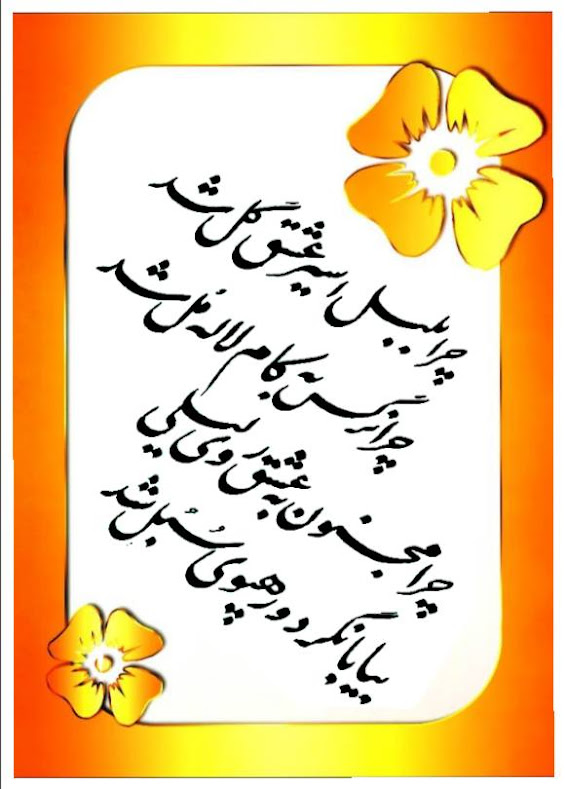 چرا بلبل اسیر عشق گل شد
چرا نرگس به کام لاله مُل شد
چرا مجنون به عشق روی لیلی
بیابانگرد و رهپوی سُبُل شد